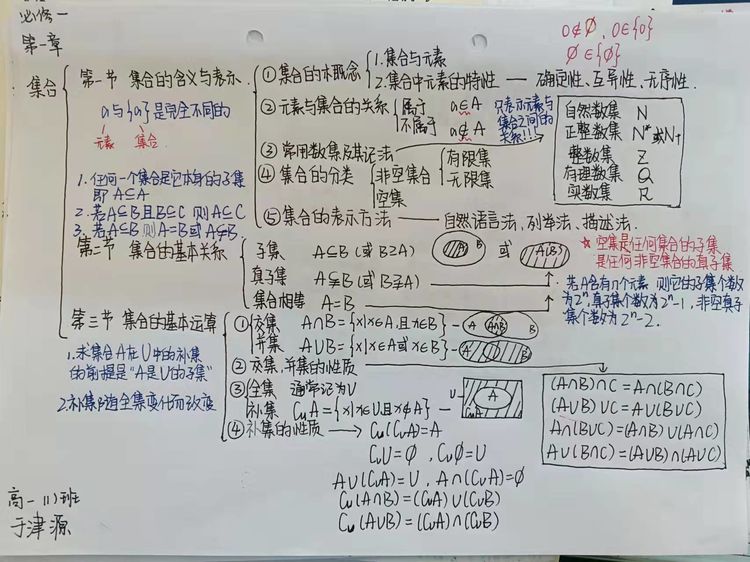 必修一
第一章
集合
第一节 集合的含义与表示
a与{a}是完全不同的
元素 集合
① 集合的相关概念
1. 集合与元素
2. 集合中元素的特性 — 确定性、互异性、无序性.
0∉∅, 0∈{0}
∅∈{∅}
② 元素与集合的关系
属于 a∈A
不属于 a∉A
只表示元素与
集合之间的
关系!!!
③ 常用数集及其记法
自然数集 N
正整数集 N*或N+
整数集 Z
有理数集 Q
实数集 R
④ 集合的分类
非空集合
有限集
无限集
空集
⑤ 集合的表示方法 — 自然语言法、列举法、描述法.
1. 任何一个集合是它本身的子集
即 A⊆A
2. 若A⊆B且B⊆C 则A⊆C
3. 若A⊆B则A=B或A⫋B.
第二节 集合的基本关系
子集 A⊆B (或B⊇A)
A B 或 A(B)
真子集 A⫋B (或B⫌A)
集合相等 A=B
* 空集是任何集合的子集
是任何非空集合的真子集
若A含有n个元素,则它的子集个数
为2ⁿ,真子集个数为2ⁿ-1,非空真子
集个数为2ⁿ-2.
第三节 集合的基本运算
1. 求集合A在U中的补集
的前提是"A是U的子集"
2. 补集随全集变化而改变
① 交集 A∩B={x|x∈A,且x∈B} — A A∩B B
并集 A∪B={x|x∈A或x∈B}
② 交集,并集的性质
(A∩B)∩C=A∩(B∩C)
(A∪B)∪C=A∪(B∪C)
A∩(B∪C)=(A∩B)∪(A∩C)
A∪(B∩C)=(A∪B)∩(A∪C)
③ 全集 通常记为U
补集 ∁uA={x|x∈U且x∉A} — U A
④ 补集的性质 → ∁u(∁uA)=A
∁uU=∅, ∁u∅=U
A∪(∁uA)=U, A∩(∁uA)=∅
∁u(A∩B)=(∁uA)∪(∁uB)
∁u(A∪B)=(∁uA)∩(∁uB)
高一(1)班
于津源